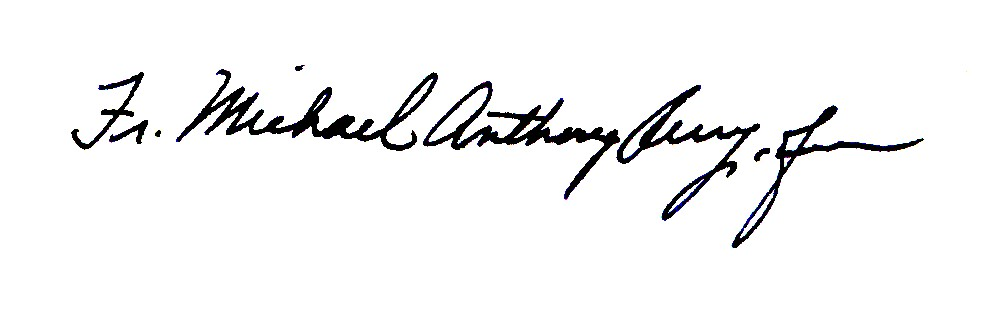 Fr. Michael Anthony Perry, ofm